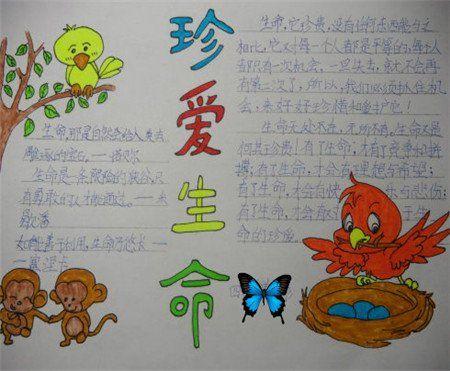 珍爱生命
生命，那是自然会给人类去
雕琢的宝石。——诺贝尔
生命是一条艰险的狭谷，只
有勇敢的人才能通过。——米
歇潘
如能善于利用，生命乃悠长。—
—塞涅卡
生命，它珍贵，没有任何东西能与之
相比，它对每一个人都是平等的，每个人
都只有一次机会，一旦失去，就不会再
有第二次了，所以，我们必须抓住机
会，来好好珍惜和爱护它！
生命无处不在，无所不有，生命又是
何其珍贵！有了生命，才有了竞争的拼
搏；有了生命，才会有理想与希望；
有了生命，才会自
与悲伤；
有了生命，才会有
生
命的珍爱。